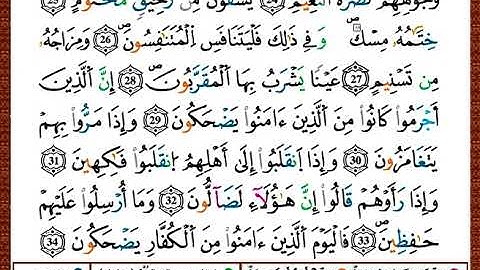 وُجُوهِهِمْ نَضْرَةَ ٱلنَّعِيمِ 24 يُسْقَوْنَ مِن رَّحِيقٍ مَّخْتُومٍ 25
خِتَٰمُهُۥ مِسْكٌۚ وَفِي ذَٰلِكَ فَلْيَتَنَافَسِ ٱلْمُتَنَٰفِسُونَ 26 وَمِزَاجُهُۥ
مِن تَسْنِيمٍ 27 عَيْنًا يَشْرَبُ بِهَا ٱلْمُقَرَّبُونَ 28 إِنَّ ٱلَّذِينَ
أَجْرَمُوا۟ كَانُوا۟ مِنَ ٱلَّذِينَ ءَامَنُوا۟ يَضْحَكُونَ 29 وَإِذَا مَرُّوا۟ بِهِمْ
يَتَغَامَزُونَ 30 وَإِذَا ٱنقَلَبُوٓا۟ إِلَىٰٓ أَهْلِهِمُ ٱنقَلَبُوا۟ فَكِهِينَ 31
وَإِذَا رَأَوْهُمْ قَالُوٓا۟ إِنَّ هَٰٓؤُلَآءِ لَضَآلُّونَ 32 وَمَآ أُرْسِلُوا۟ عَلَيْهِمْ
حَٰفِظِينَ 33 فَٱلْيَوْمَ ٱلَّذِينَ ءَامَنُوا۟ مِنَ ٱلْكُفَّارِ يَضْحَكُونَ 34